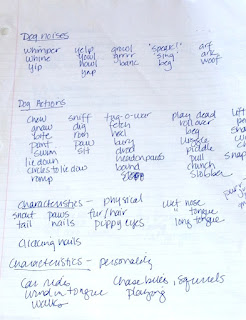 Dog Noises
whimper yelp growl "speak!" arf
whine yowl grrrr sing ark
yip howl bark beg woof
yap
Dog Actions
chew sniff tug-o-war play dead
gnaw dig fetch roll over
bite run heel beg
pant paw bury
swim sit drool piddle
lie down head on paws pull
circles to lie down bound crunch
romp sleep slobber
Characteristics - physical wet nose
snout paws fur/hair " tongue
tail nails puppy eyes long tongue
Clicking nails
Characteristics - personality
Car ride Chase balls, squirrels
wind in tongue playing
walks